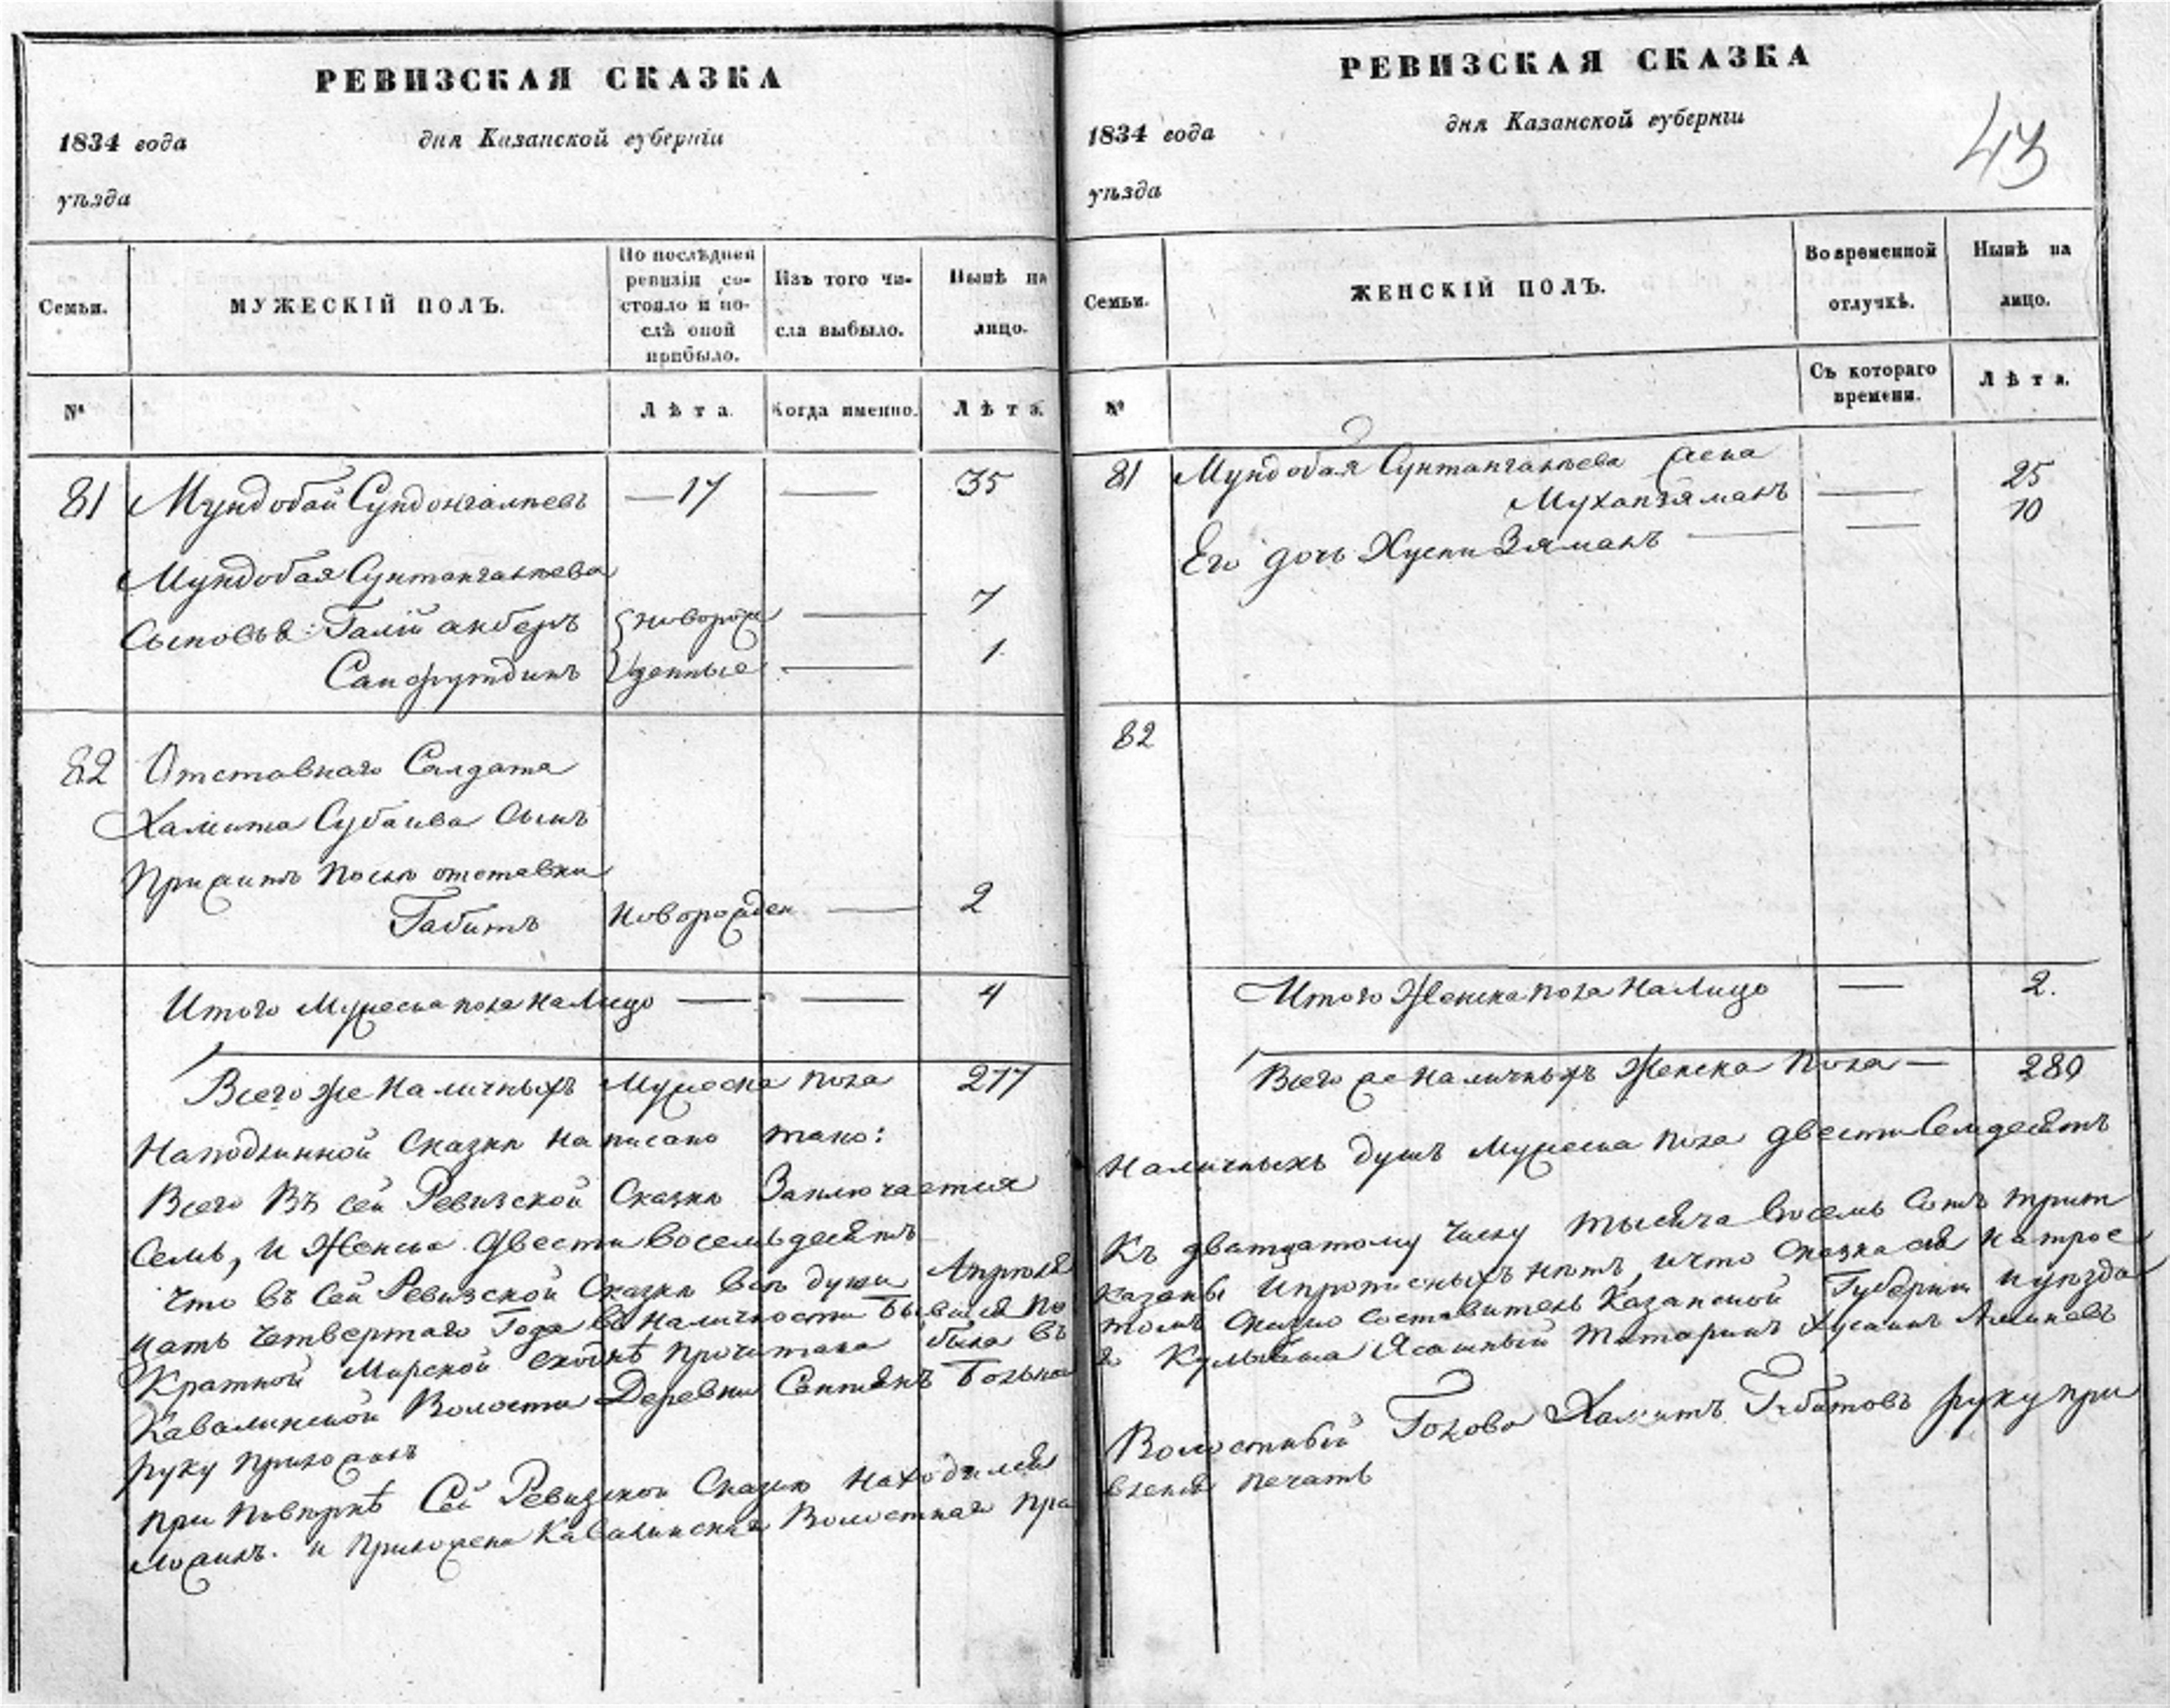 РЕВИЗСКАЯ СКАЗКА
1834 года дня Казанской губерніи
уѣзда
Семьи. МУЖЕСКІЙ ПОЛЪ. По послѣдней ревизіи состояло и послѣ оной прибыло. Изъ того числа выбыло. Нынѣ на лицо.
№ Лѣта. Когда именно. Лѣта.
81 Мундобай 17 — 35
Мундобая
Сыновья: Галій акберъ новорож — 7
Сайфутдинъ денные — 1
82 Отставнаго Салдата
Хамита Субаева Сынъ
Прижитъ послѣ отставки
Габитъ новорожден — 2
Итого Мужеска пола на Лицо — — 4
Всего же Наличныхъ Мужеска пола 277
На подлинной Сказкѣ написано тако:
Всего Въ сей Ревизской Сказкѣ Заключается
Семь, и Женска Двести восемьдесятъ
что въ Сей Ревизской Сказкѣ всѣ души Апрѣля
цать четвертаго Года въ наличности бывшія по
Кратной Мирской сходкѣ прочитана была въ
Кавалинской Волости Деревни Больша
руку приложилъ
При повѣркѣ Сей Ревизской Сказки находился
ложилъ. и Приложена Кавалинскаго Волостнаго пра
РЕВИЗСКАЯ СКАЗКА
1834 года дня Казанской губерніи
43
уѣзда
Семьи. ЖЕНСКІЙ ПОЛЪ. Во временной отлучкѣ. Нынѣ на лицо.
№ Съ котораго времени. Лѣта.
81 Мундобая жена
— 25
Его дочь Хусни Зяманъ — — 10
82
Итого Женска пола на Лицо — 2.
Всего же наличныхъ Женска пола — 280
Наличныхъ душъ Мужеска пола двести Семдесятъ
Къ дватцатому числу тысяча восемь сотъ трит
казаны и прописныхъ нѣтъ, и что сказка сія на трое
томъ Сказки составитель Казанской Губерніи и уѣзда
Ясашный Татаринъ Хусаинъ
Волостный Голова Хамитъ Габитовъ руку при
вленія печать